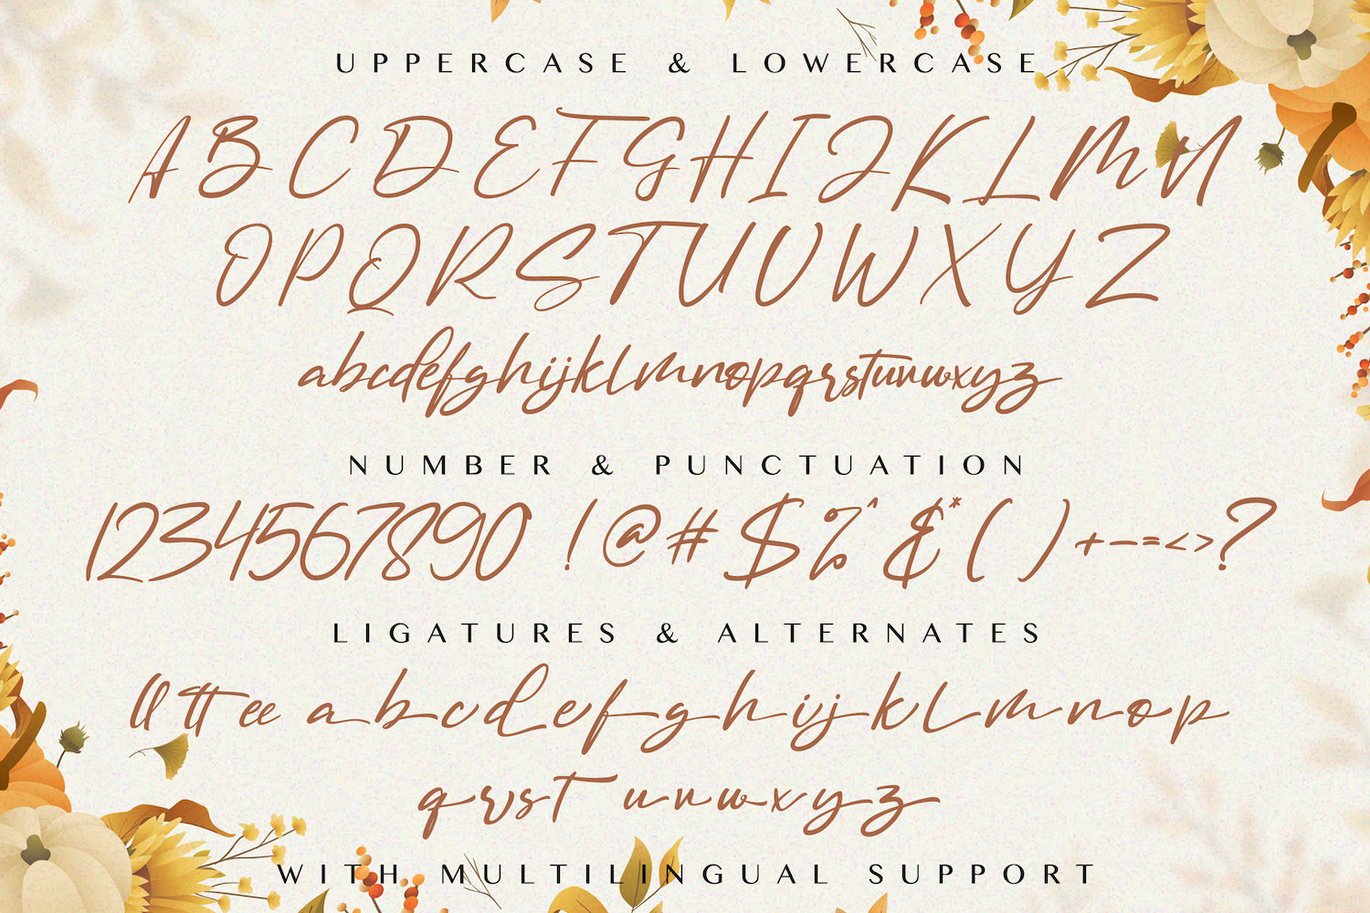 UPPERCASE & LOWERCASE
ABCDEFGHIJKLMN
OPQRSTUVWXYZ
abcdefghijklmnopqrstuvwxyz
NUMBER & PUNCTUATION
1234567890 !@#$%^&*()+-=<>?
LIGATURES & ALTERNATES
ll tt ee abcdefghijklmnop
qrstuvwxyz
WITH MULTILINGUAL SUPPORT